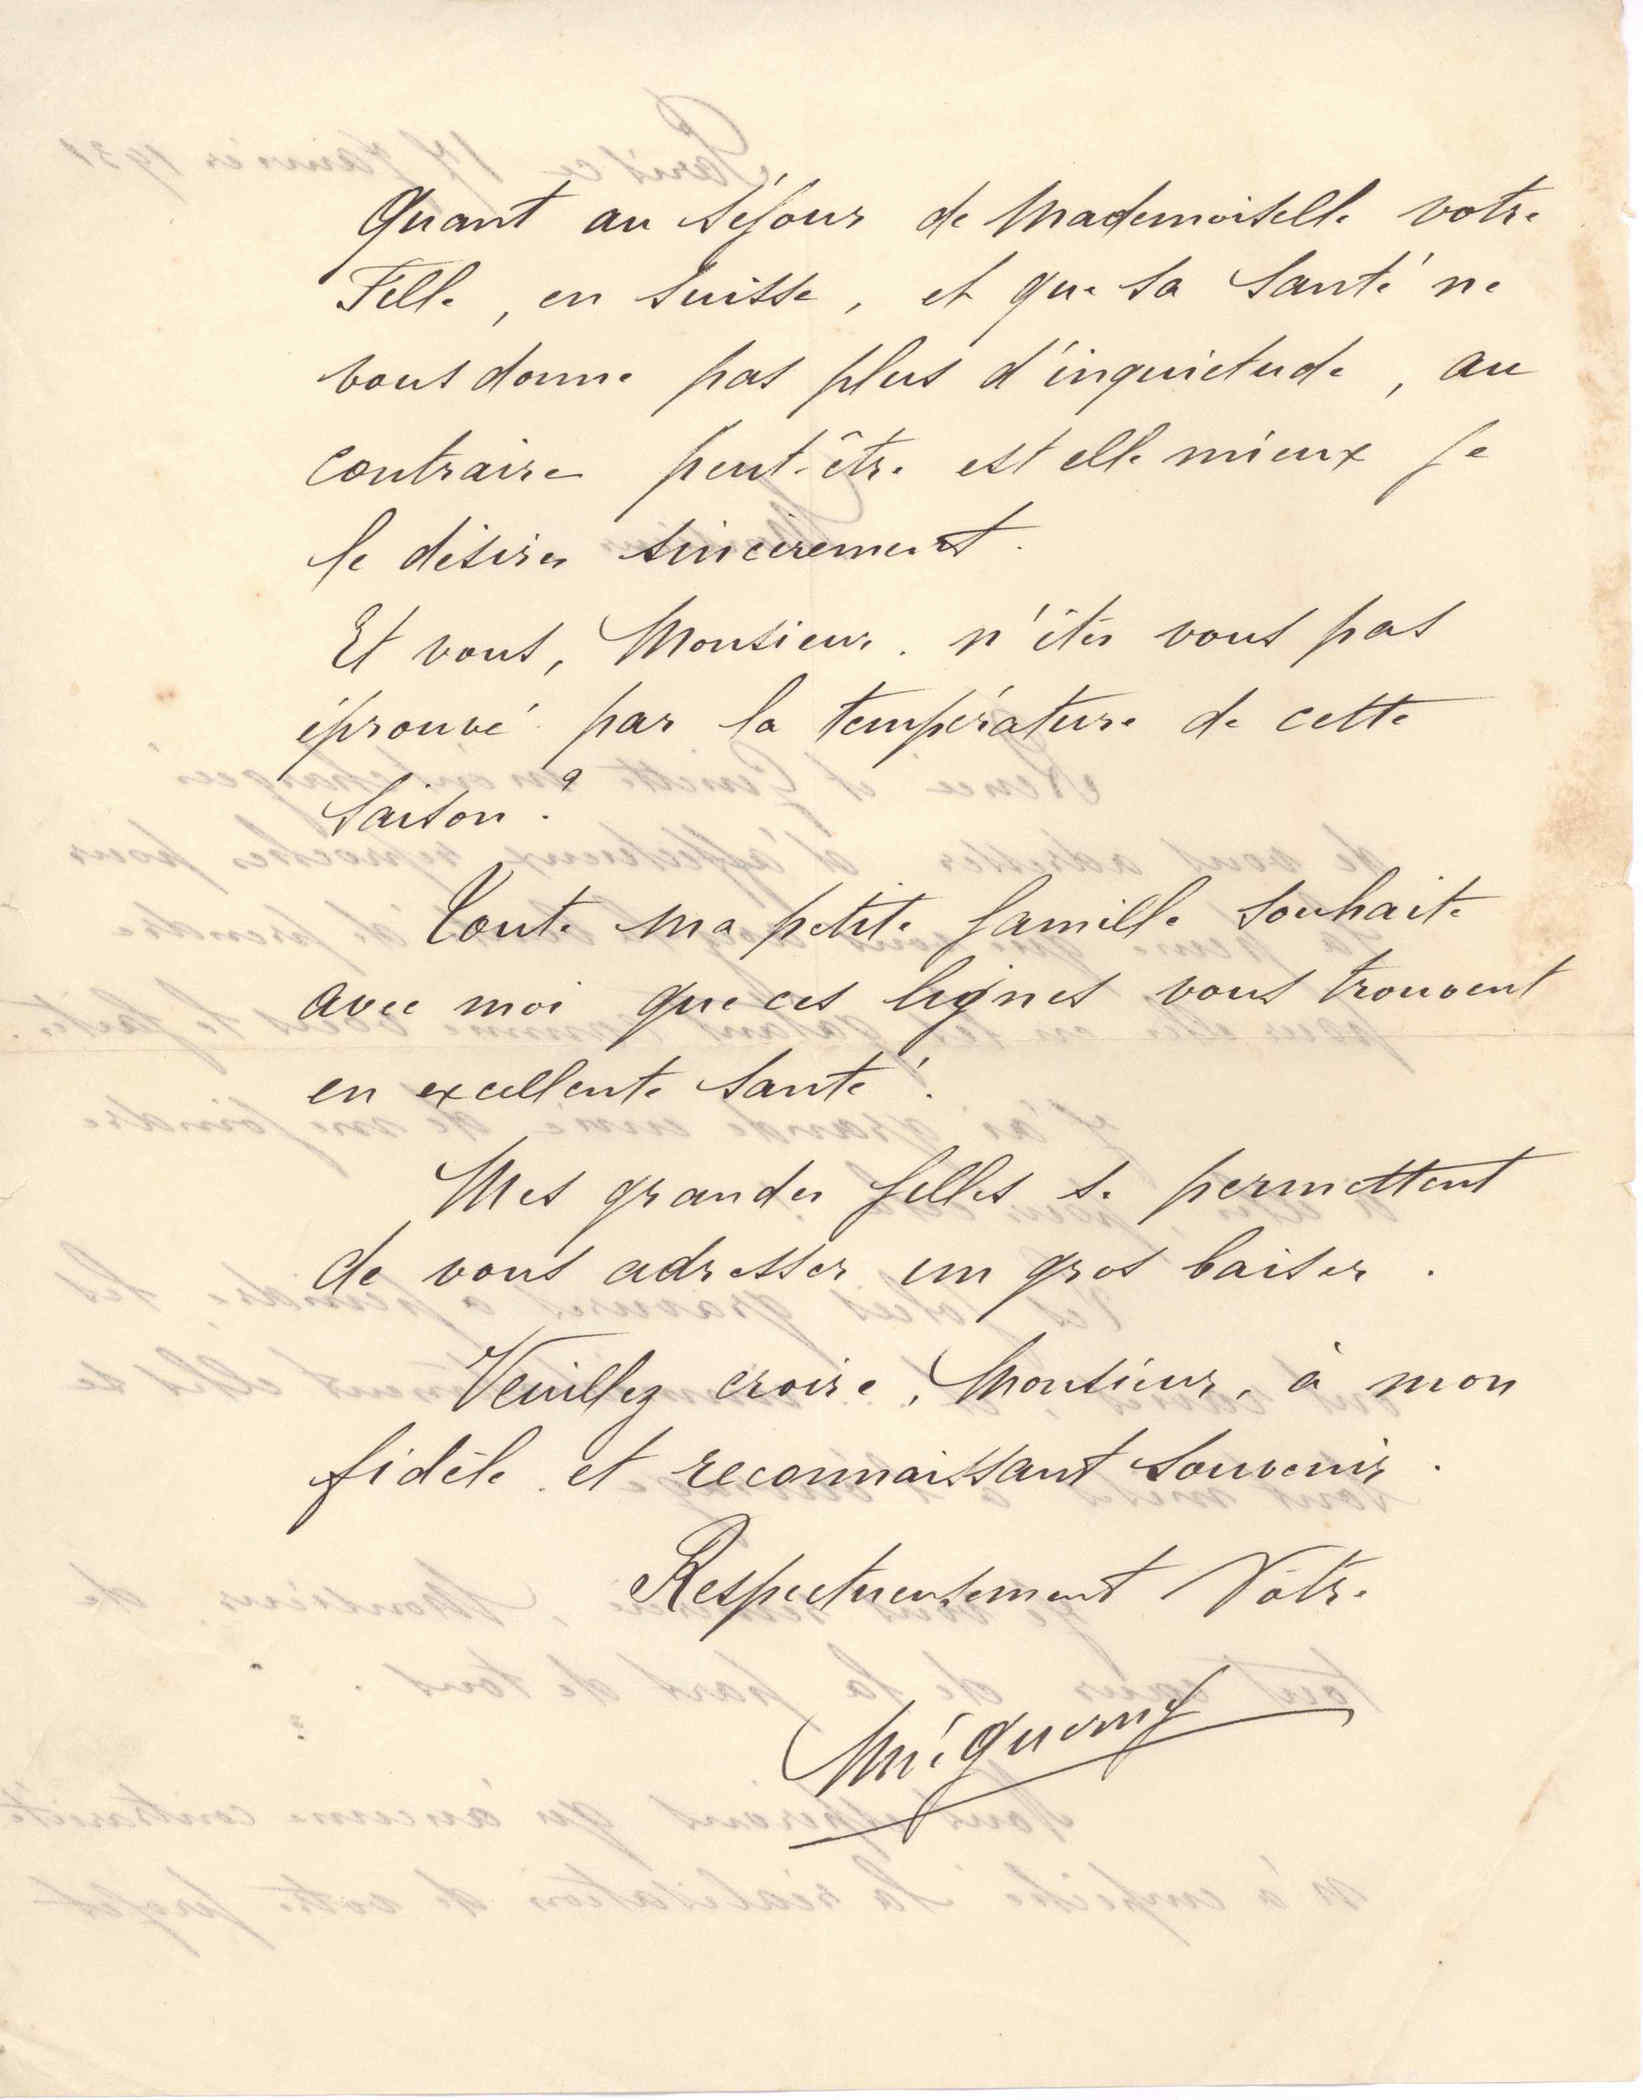 Quant au séjour de Mademoiselle votre
Fille, en Suisse, et que sa santé ne
vous donne pas plus d'inquietude, au
contraire peut-être est elle mieux je
le désire sincerement.
Et vous, Monsieur. n'êtes vous pas
éprouvé par la température de cette
saison ?
Toute ma petite famille souhaite
avec moi que ces lignes vous trouvent
en excellente santé.
Mes grandes filles se permettent
de vous adresser un gros baiser.
Veuillez croire, Monsieur, à mon
fidèle et reconnaissant souvenir.
Respectueusement Vôtre